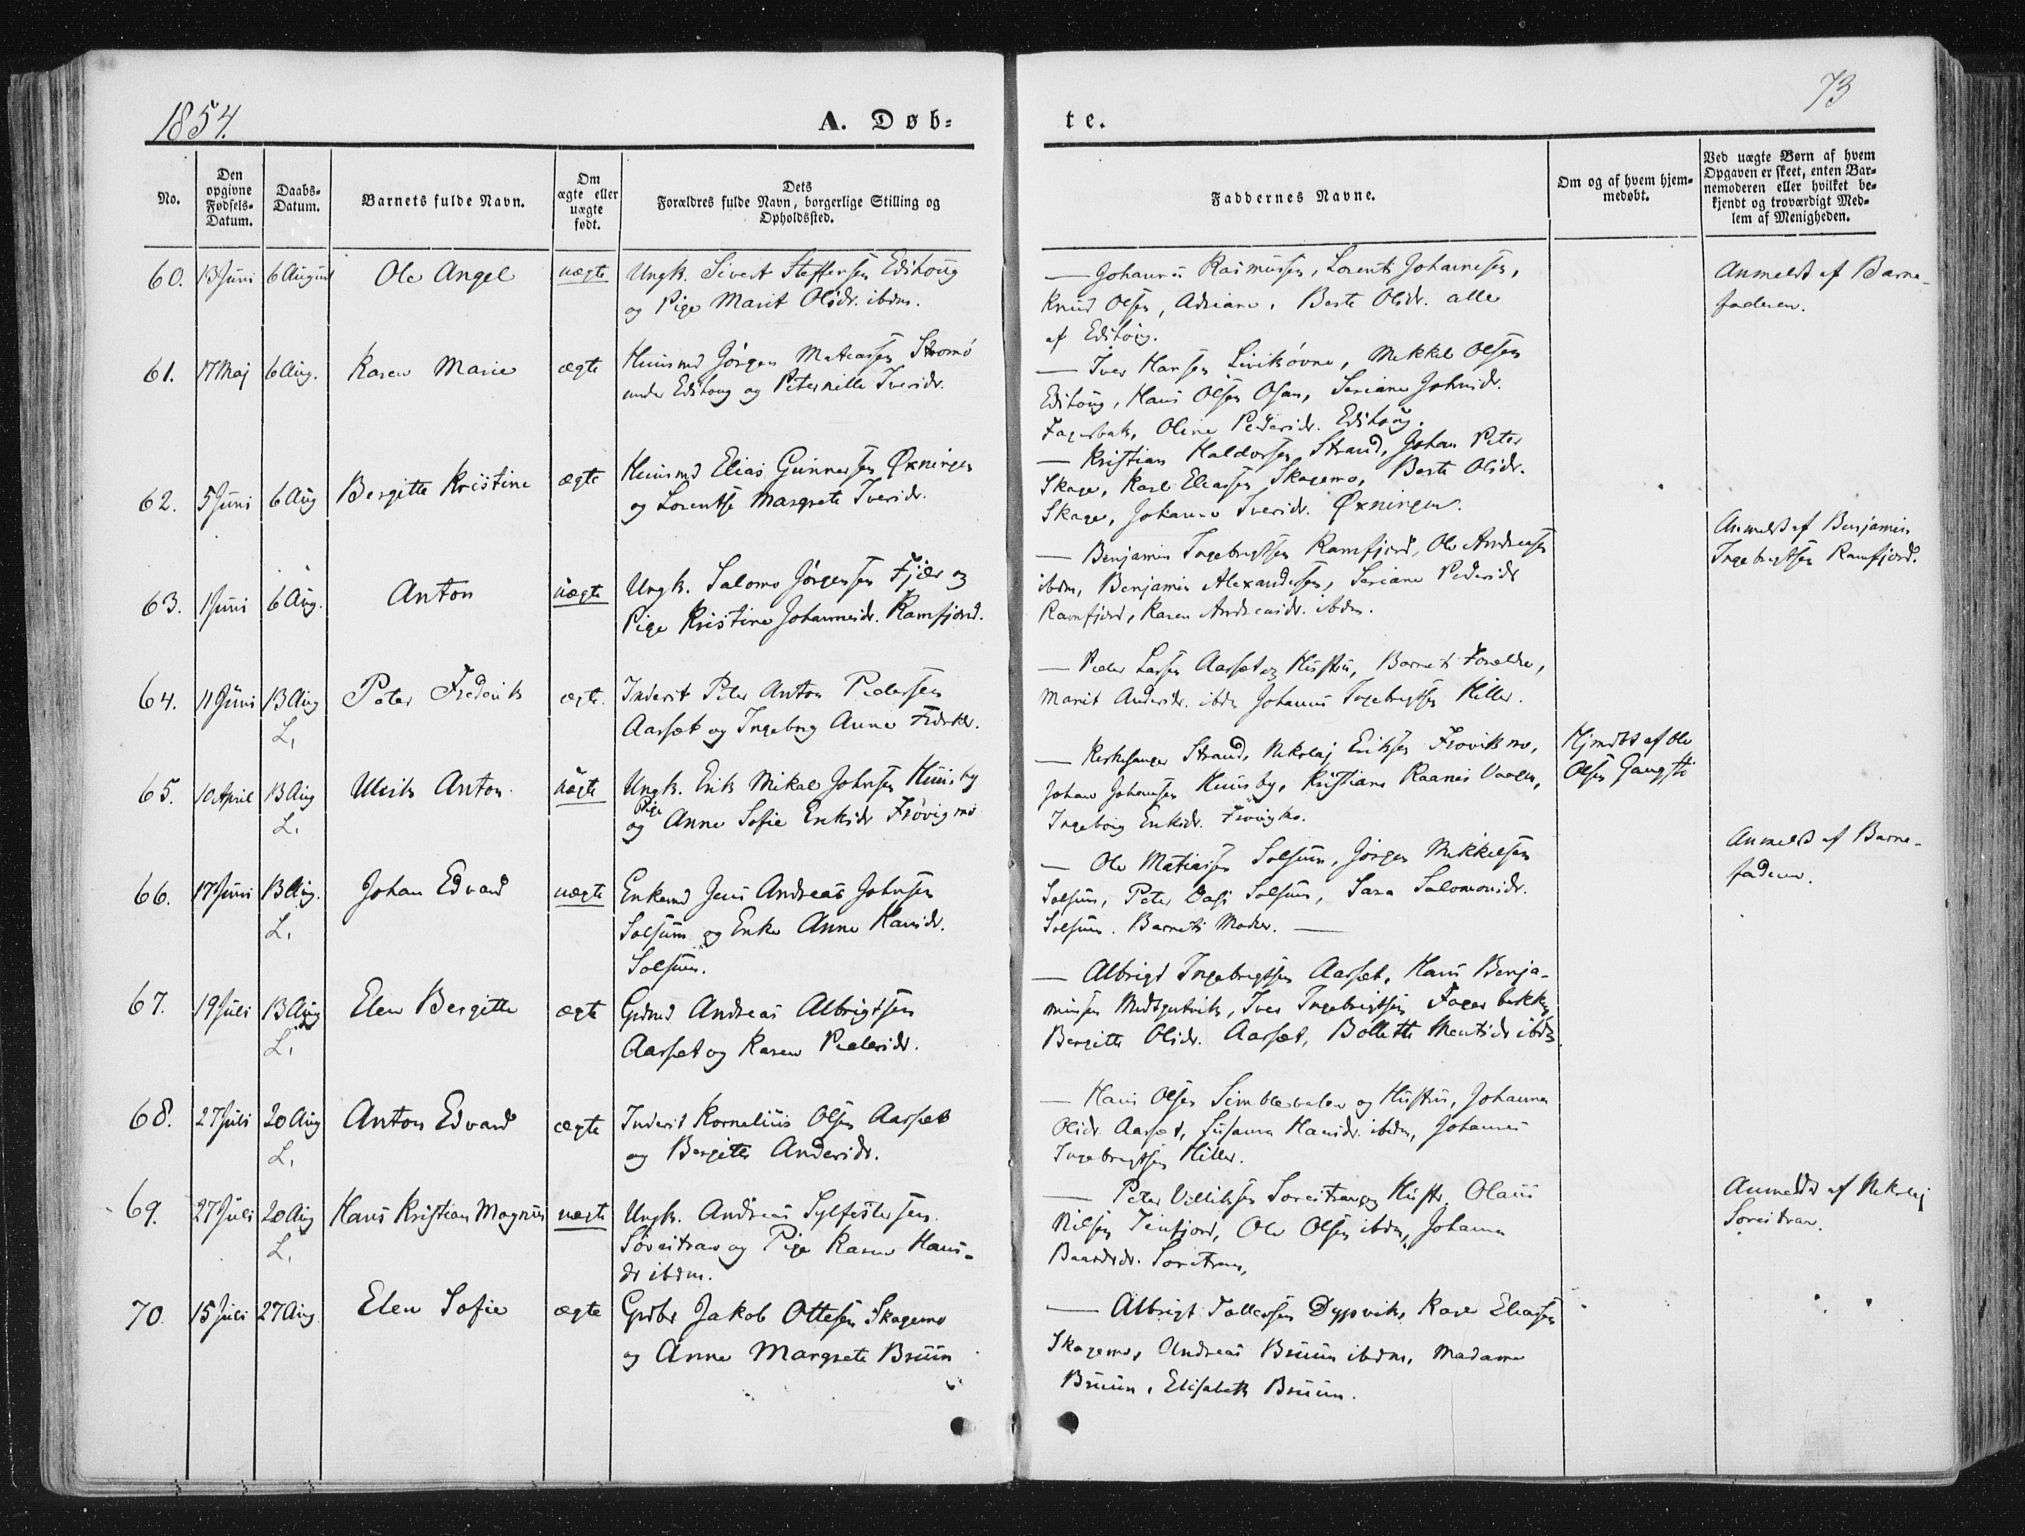 1854.
A. Døb-
te.
73
No.
Den opgivne Fødsels-Datum.
Daabs-Datum.
Barnets fulde Navn.
Om ægte eller uægte født.
Dets Forældres fulde Navn, borgerlige Stilling og Opholdssted.
Faddernes Navne.
Om og af hvem hjem-
medøbt.
Ved uægte Børn af hvem
Opgaven er skeet, enten Bar-
nemoderen eller hvilket be-
kjendt og troværdigt Med-
lem af Menigheden.
60. 13 Juni 6 August Ole Angel uægte Ungk. Sivert Steffensen Edshoug
og Pige Marit Olsdr. ibdm.
— Johannes Rasmussen, Lorents Johannesen,
Knud Olsen, Adriane, Berte Olsdr. alle
af Edshoug.
Anmeldt af Barne-
faderen.
61. 17 Maj 6 Aug. Karen Marie ægte Huusmd Jørgen Matiassen Stromø
under Edshoug og Peternille Iversdr.
— Iver Hansen, Mikkel Olsen
Edshoug, Hans Olsen Osan, Seriane Johnsdr.
Fagerbak, Oline Pedersdr. Edshoug.
62. 5 Juni 6 Aug Bergitte Kristine ægte Huusmd Elias Gunnersen Øxningen
og Lorentse Margrete Iversdr.
— Kristian Haldorsen Strand, Johan Peter
Skage, Karl Eliassen Skagemo, Berte Olsdr.
Skage, Johanna Iversdr. Øxningen.
63. 1 Juni 6 Aug. Anton uægte Ungk. Salomo Jørgensen Fjær og
Pige Kristine Johannesdr. Ramfjord.
— Benjamin Ingebrigtsen Ramfjord, Ole Andreasen
ibdm, Benjamin Alexandersen, Seriane Pedersdr
Ramfjord, Karen Andreasdr. ibdm.
Anmeldt af Benjamin
Ingebrigtsen Ramfjord.
64. 11 Juni 13 Aug L. Peter Frederik ægte. Inderst Peter Anton Pedersen
Aarset og Ingeborg Anna
— Peder Larsen Aarset og Hustru, Barnets Forældre,
Marit Andersdr. ibdm Johannes Ingebrigtsen Hiller.
65. 10 April 13 Aug L. Ulrik Anton uægte Ungk. Erik Mikal Johnsen Huusby
og Pige Anne Sofie Eriksdr Frøvigmo
— Kirkesanger Strand, Nikolaj Eriksen Frøvikmo,
Johan Johansen Huusby, Kristiane Vaagen,
Ingeborg Eriksdr.
Hjmdbt af Ole
Olsen
66. 17 Juni 13 Aug. L. Johan Edvard uægte Enkemd Jens Andreas Johnsen
Solsum og Enke Anne Hansdr.
Solsum.
— Ole Matiassen Solsum, Jørgen Mikkelsen
Solsum, Peter Solsum, Sara Salomonsdr.
Solsum. Barnets Moder. —
Anmeldt af Barne-
faderen.
67. 19 Juli 13 Aug L. Elen Bergitte ægte Grdmd Andreas Albrigtsen
Aarset og Karen Pedersdr.
— Albrigt Ingebrigtsen Aarset, Hans Benja-
minsen, Iver Ingebrigtsen Fagerbakk,
Bergitte Olsdr. Aarset, Bollette ibdm.
68. 27 Juli 20 Aug L. Anton Edvard ægte Inderst Kornelius Olsen Aarset
og Bergitte Andersdr.
— Hans Olsen og Hustru, Johanna
Olsdr. Aarset, Susanna Hansdr. ibdm, Johannes
Ingebrigtsen Hiller.
69. 27 Juli 20 Aug L. Hans Kristian Magnus uægte Ungk. Andreas Sylfestersen
Søreitran og Pige Karen Hans-
dr ibdm.
— Peter Søreitran og Hustr, Olaus
Nilsen, Ole Olsen ibdm, Johanna
Baardsdr.
Anmeldt af Nikolaj
Søreitran.
70. 15 Juli 27 Aug. Elen Sofie ægte Grdbr Jakob Ottesen Skagemo
og Anne Margrete Bruun
— Albrigt Tollersen Dypvik, Karl Eliassen
Skagemo, Andreas Bruun ibdm, Madame
Bruun, Elisabeth Bruun.